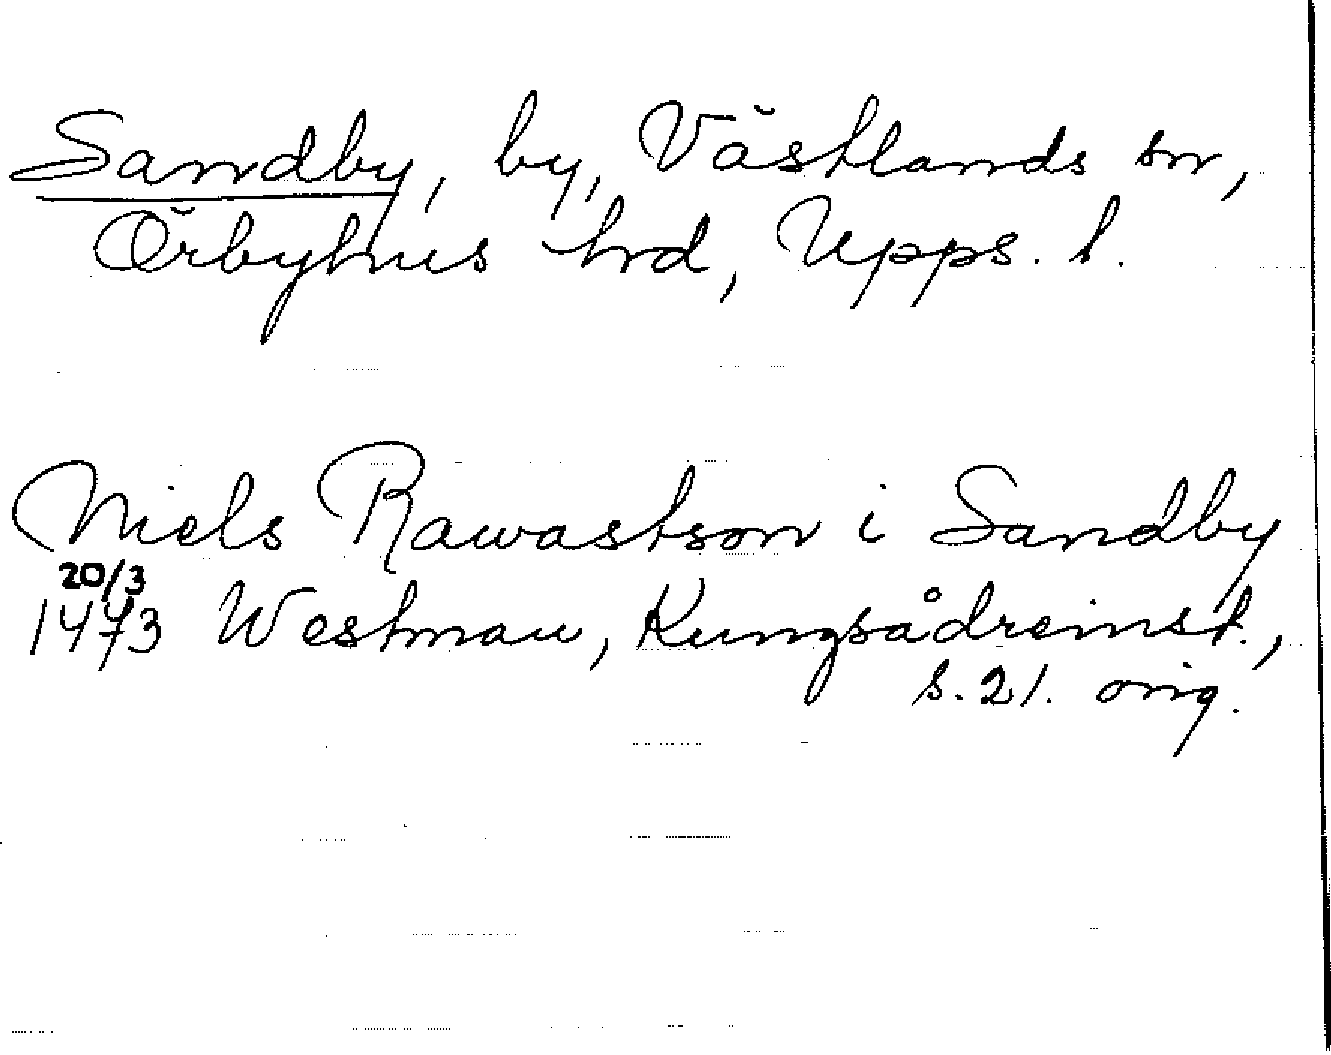 Sandby, by, Västlands sn,
Örbyhus hrd, Upps. l.
Niels Rawastson i Sandby
20/3
1473 Westman, Kungsådreinst.,
s. 21. orig.